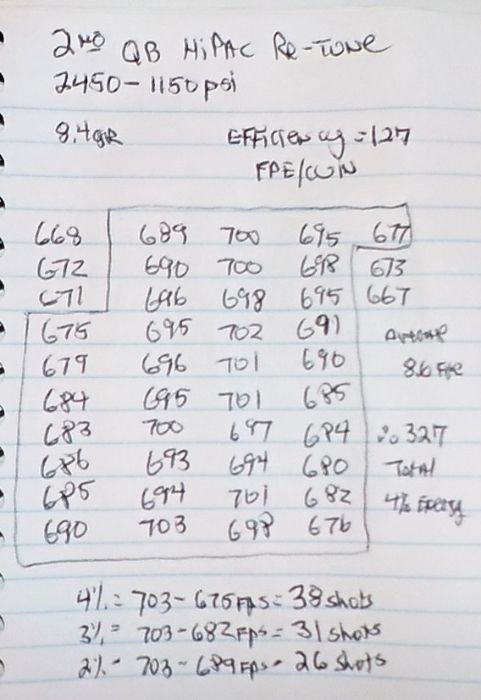 2ND QB HiPAC Re-Tune
2450-1150psi
8.4gR Efficiency = 1.27
FPE/CUIN
668 689 700 695 677
672 690 700 698 673
671 696 698 695 667
675 695 702 691 Average
679 696 701 690 8.6 FPE
684 695 701 685
683 700 697 684 ∴ 327
686 693 694 680 Total
685 694 701 682 4% Energy
690 703 698 676
4% = 703-675FPS = 38 shots
3% = 703-682FPS = 31 shots
2% - 703-689FPS - 26 shots